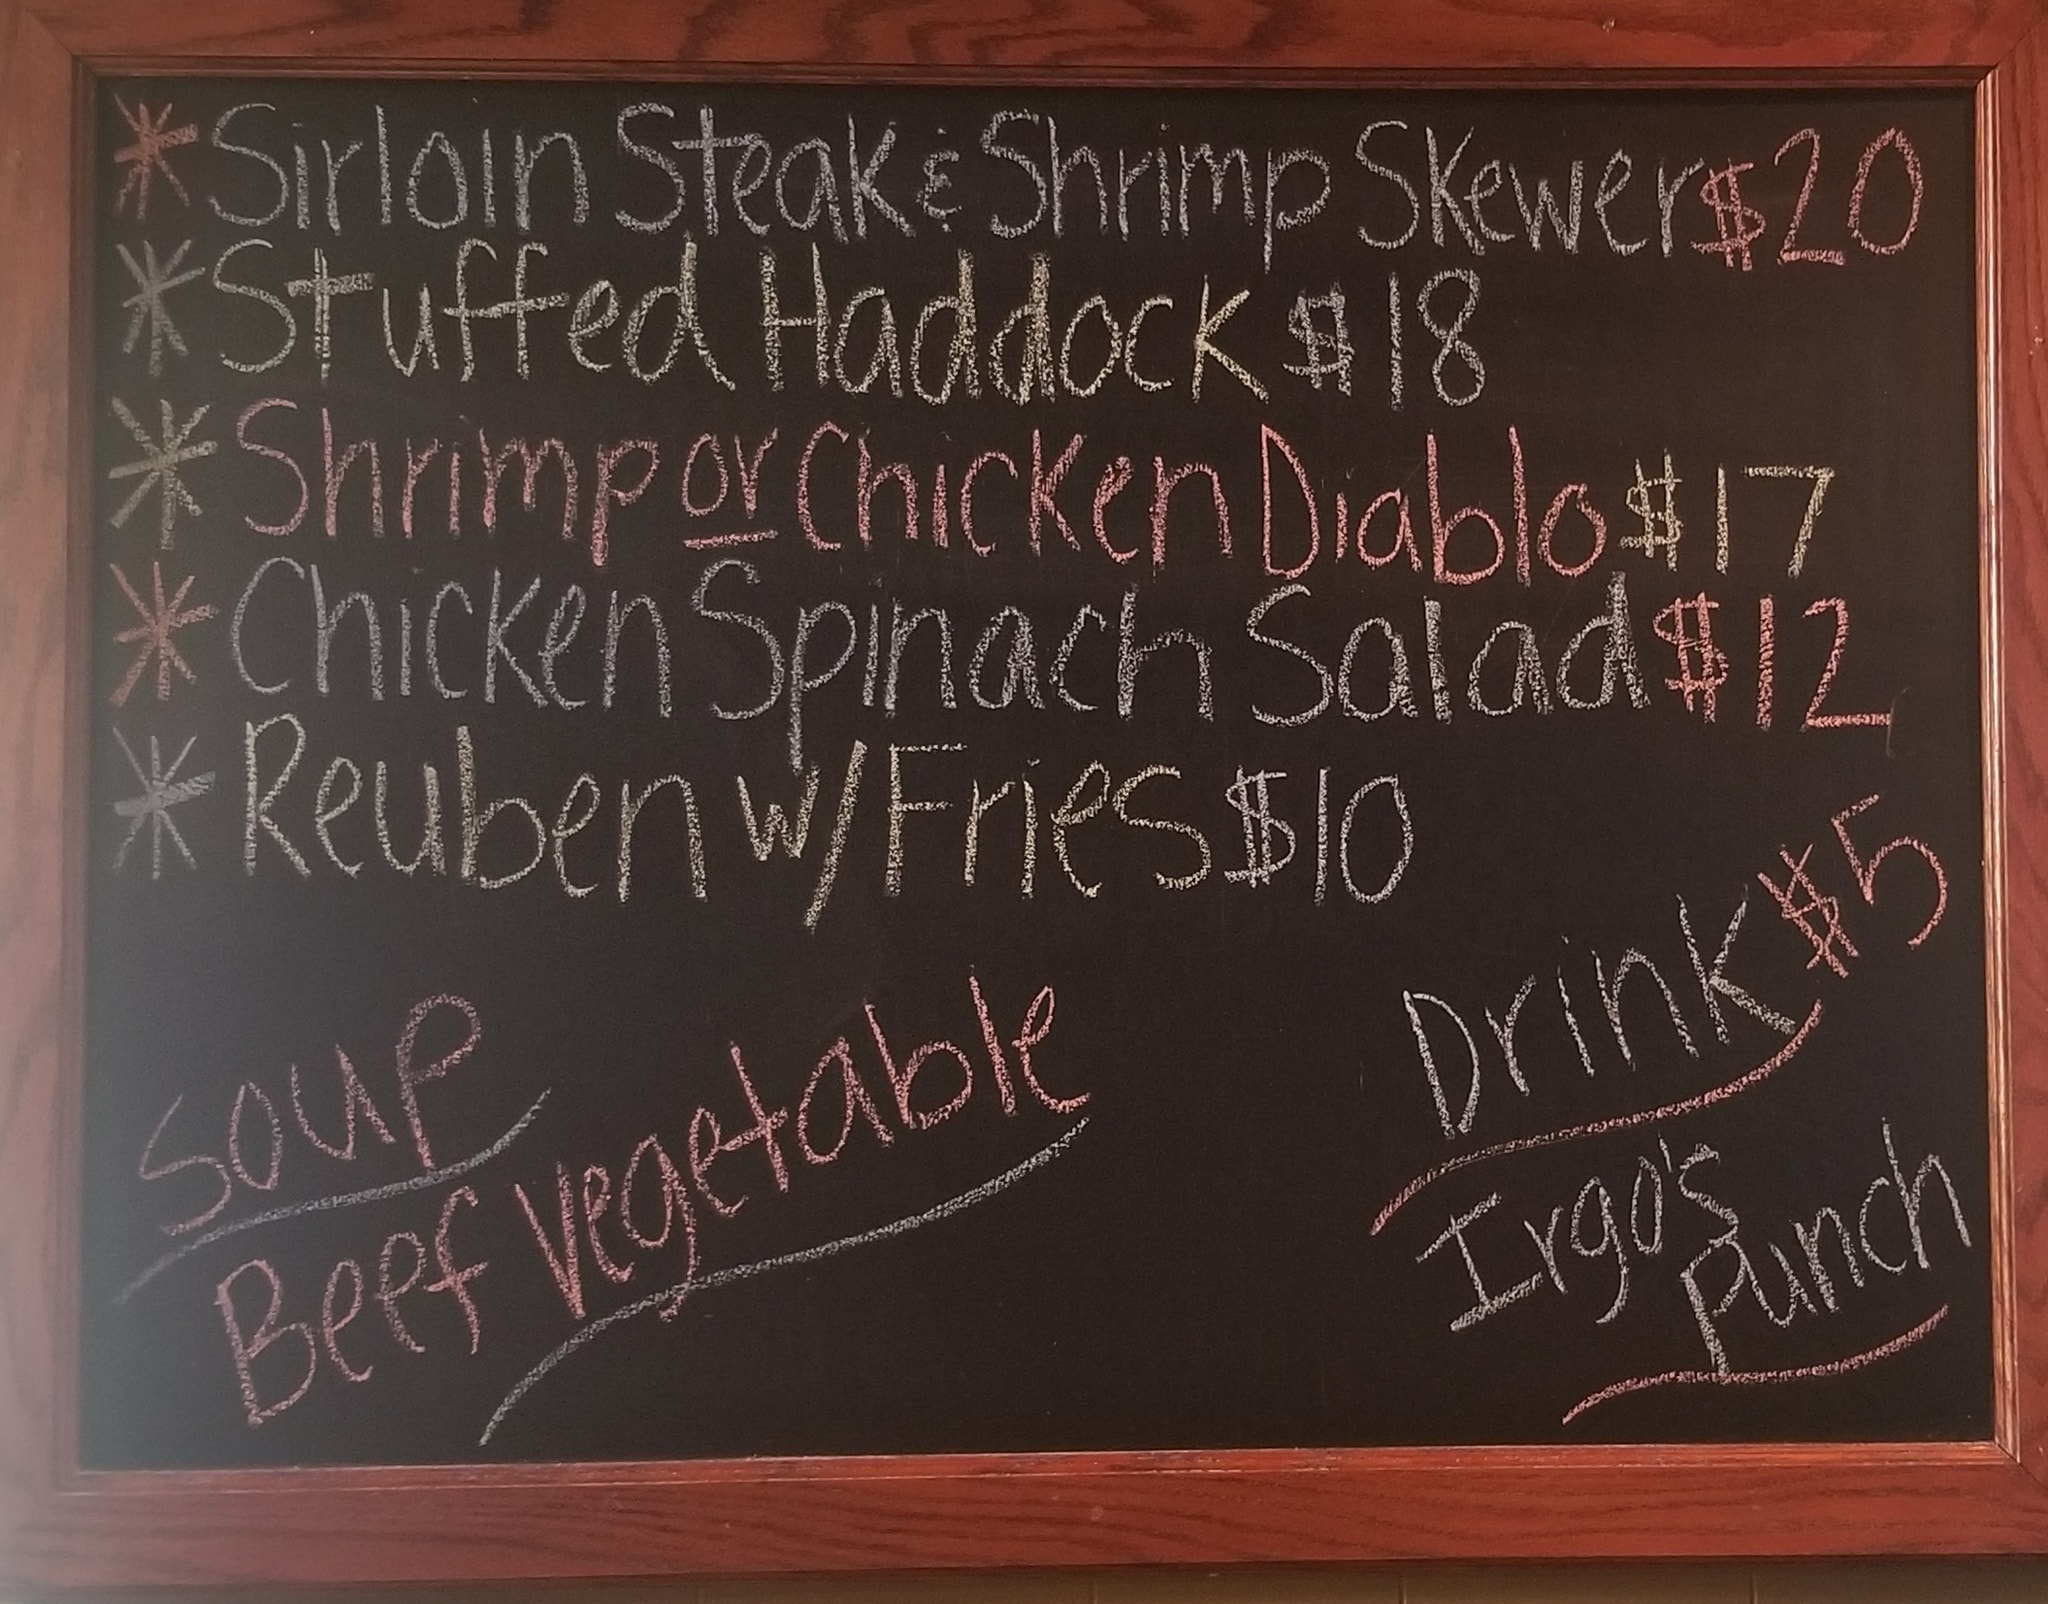 * Sirloin Steak & Shrimp Skewer $20
* Stuffed Haddock $18
* Shrimp or Chicken Diablo $17
* Chicken Spinach Salad $12
* Reuben w/ Fries $10
Soup
Beef Vegetable
Drink $5
Irgo's
Punch